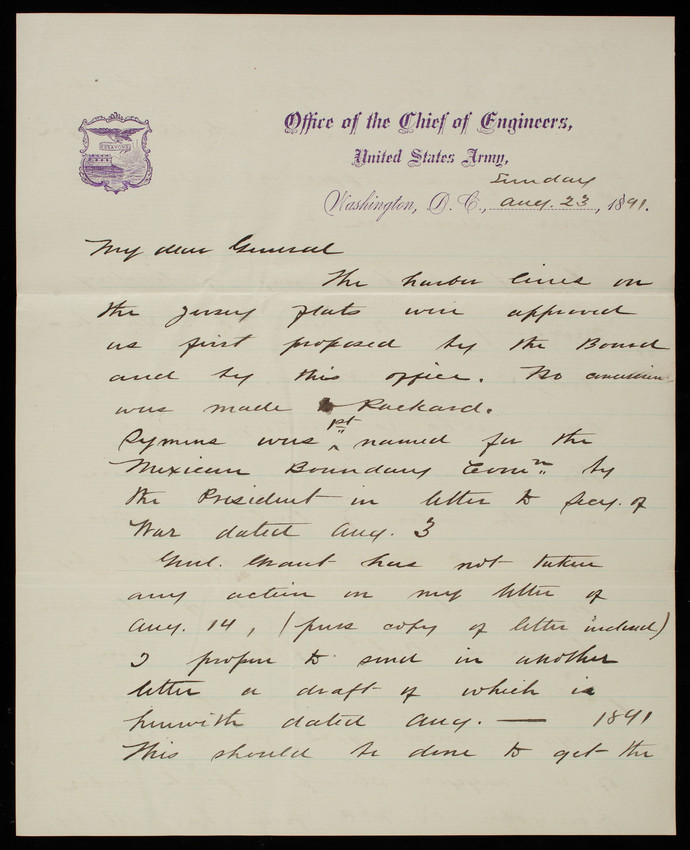 ESSAYONS
Office of the Chief of Engineers,
United States Army,
Sunday
Washington, D. C., Aug. 23, 1891.
My dear General
The harbor lines on
the Jersey flats were approved
as first proposed by the Board
and by this office. No
was made Packard.
Symons was 1st named for the
Mexican Boundary Comn by
the President in letter to Secy. of
War dated Aug. 3
Genl. Grant has not taken
any action on my letter of
Aug. 14, (press copy of letter inclosed)
I propose to send in another
letter a draft of which is
herewith dated Aug. — 1891
This should be done to get the